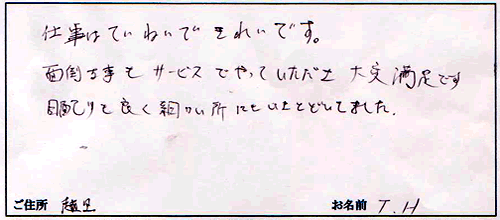 仕事はていねいで きれいです。
面倒な事も サービスでやっていただき 大変満足です
段取りも良く細かい所にもいきとどいてました.
ご住所 越生 お名前 T.H